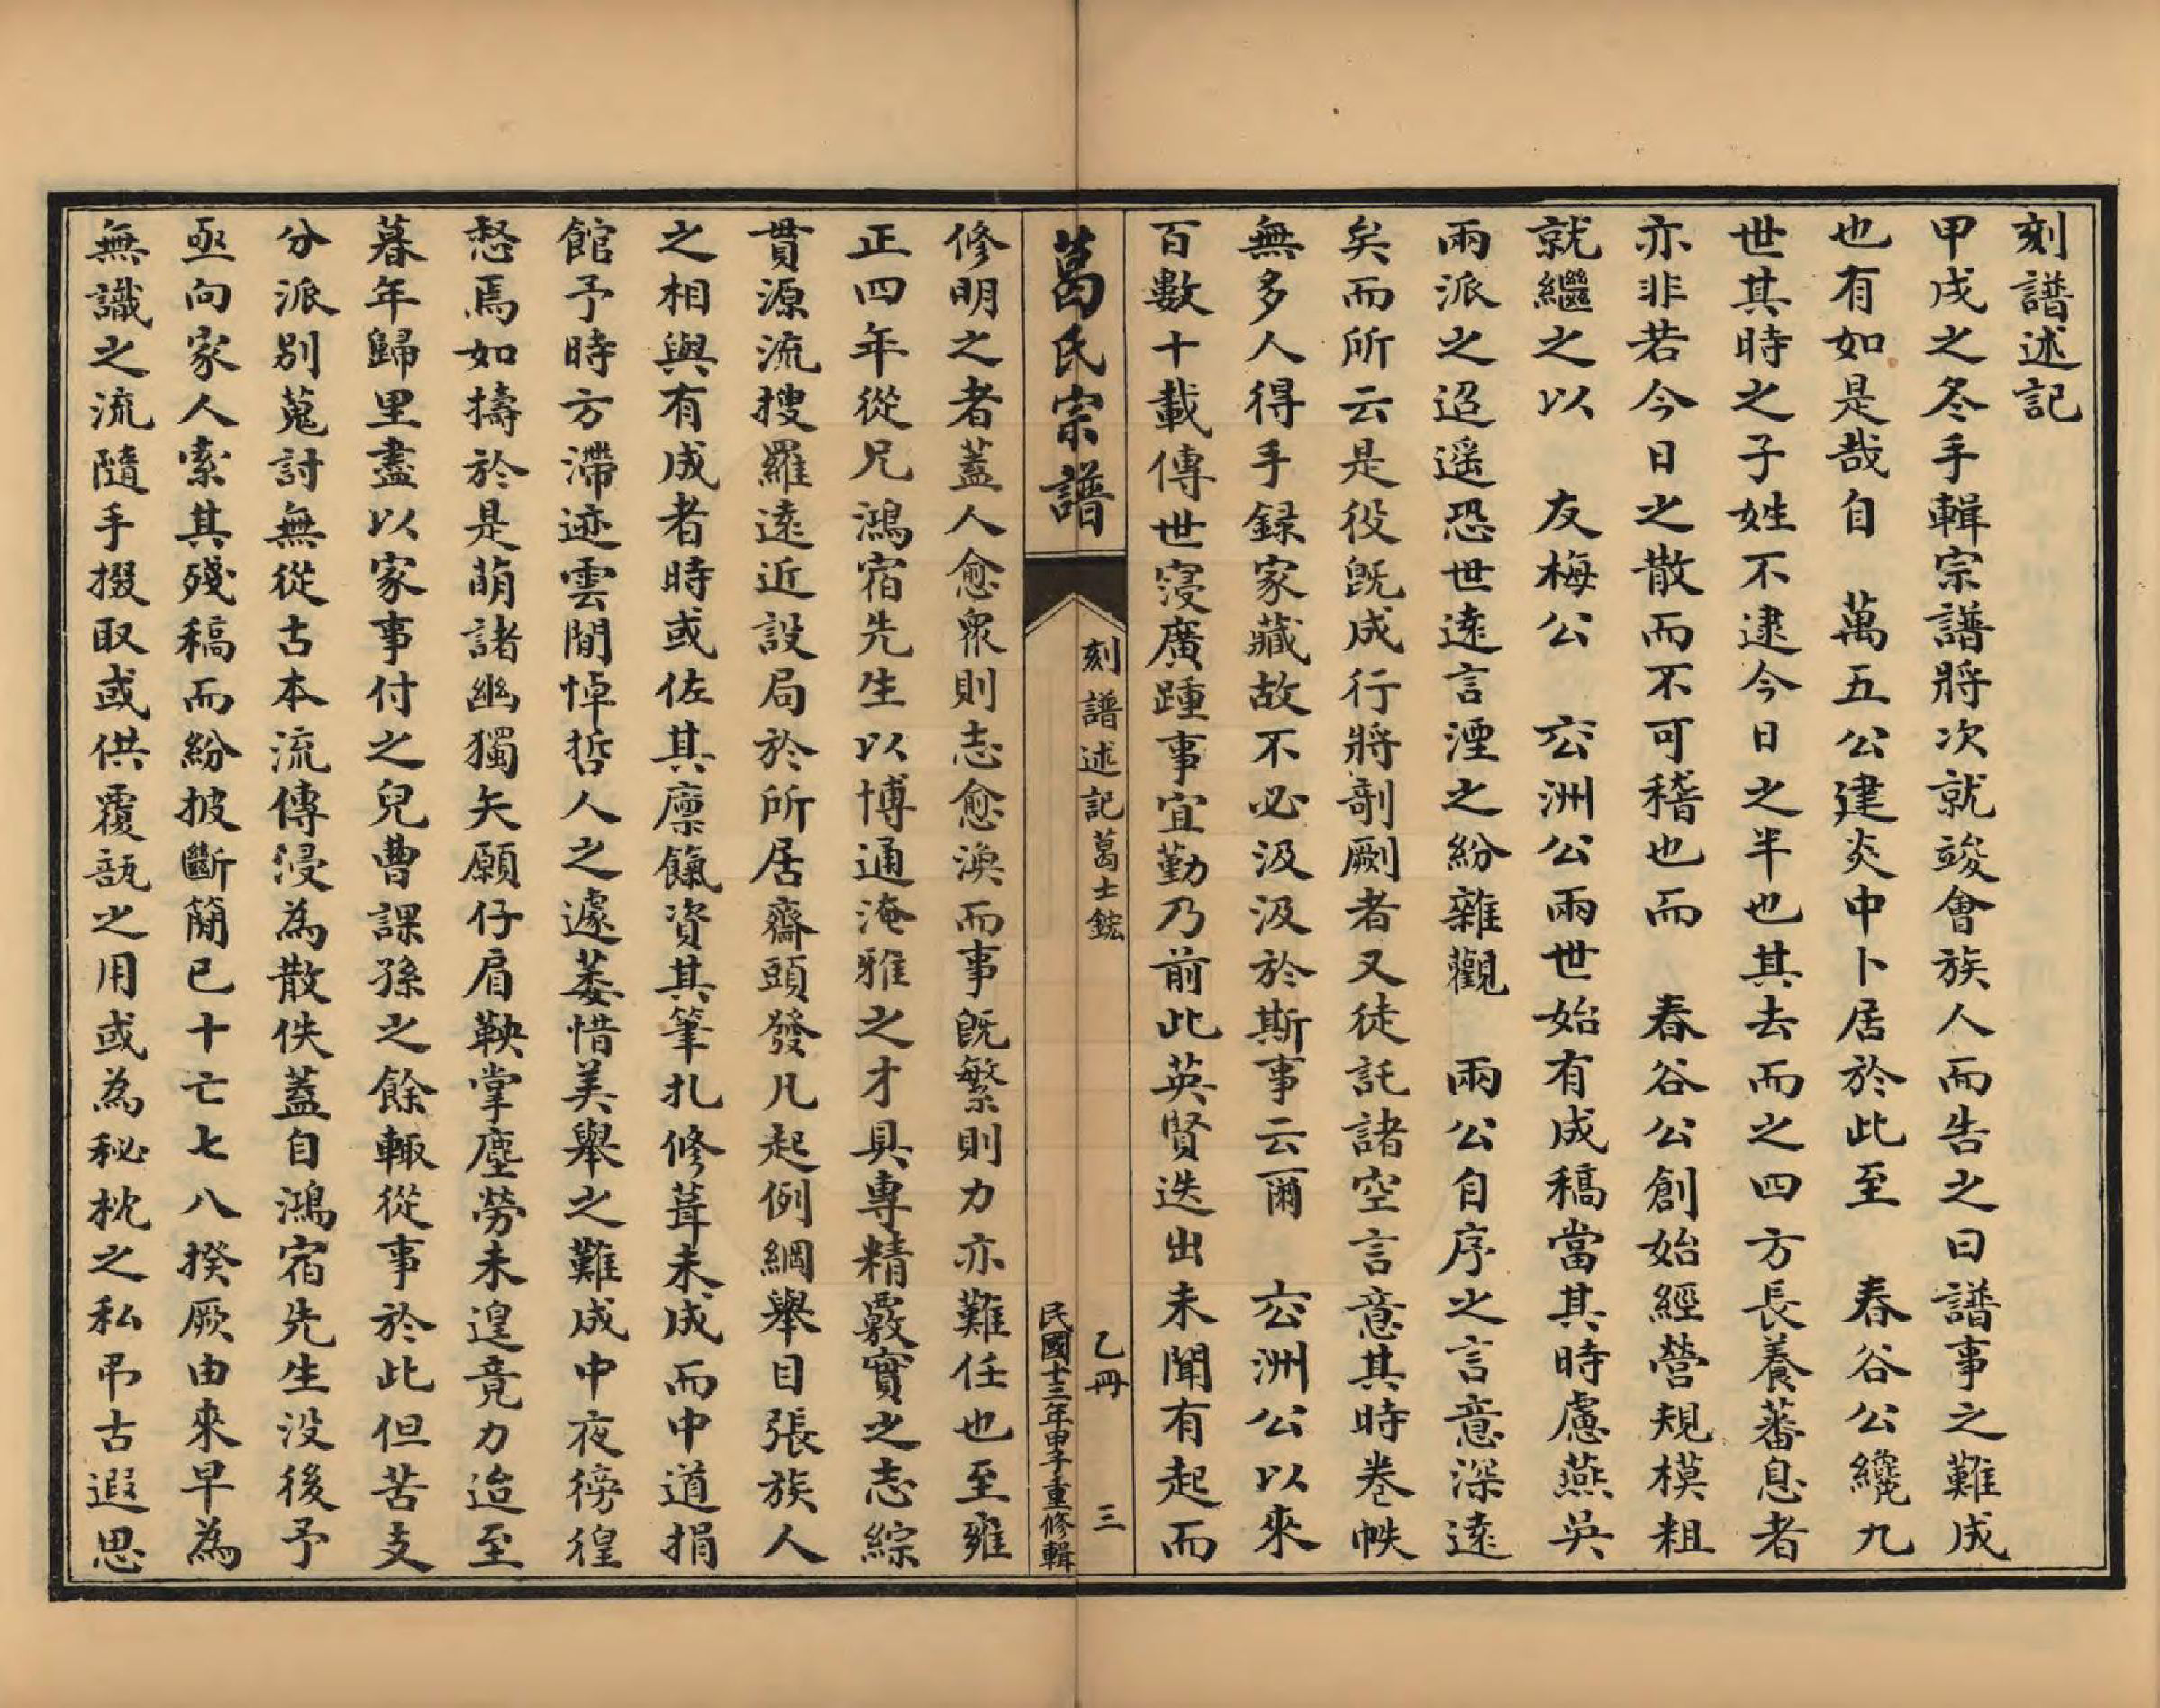 刻譜述記
甲戌之冬手輯宗譜將次就竣會族人而告之曰譜事之難成
也有如是哉自　萬五公建炎中卜居於此至　春谷公纔九
世其時之子姓不逮今日之半也其去而之四方長養蕃息者
亦非若今日之散而不可稽也而　春谷公創始經營規模粗
就繼之以　友梅公　玄洲公兩世始有成稿當其時慮燕吳
兩派之迢遥恐世遠言湮之紛雜觀　兩公自序之言意深遠
矣而所云是役既成行將剞劂者又徒託諸空言意其時卷帙
無多人得手録家藏故不必汲汲於斯事云爾　玄洲公以來
百數十載傳世寖廣踵事宜勤乃前此英賢迭出未聞有起而
葛氏宗譜
刻譜述記葛士鋐
乙冊　三
民國十三年甲子重修輯
修明之者蓋人愈衆則志愈渙而事既繁則力亦難任也至雍
正四年從兄鴻宿先生以博通淹雅之才具專精覈實之志綜
貫源流搜羅遠近設局於所居齋頭發凡起例綱舉目張族人
之相與有成者時或佐其廪餼資其筆扎修葺未成而中道捐
館予時方滯迹雲閒悼哲人之遽萎惜美舉之難成中夜徬徨
愁焉如擣於是萌諸幽獨矢願仔肩鞅掌塵勞未遑竟力迨至
暮年歸里盡以家事付之兒曹課孫之餘輙從事於此但苦支
分派別蒐討無從古本流傳浸為散佚蓋自鴻宿先生没後予
亟向家人索其殘稿而紛披斷簡已十亡七八揆厥由來早為
無識之流隨手掇取或供覆瓿之用或為秘枕之私弔古遐思